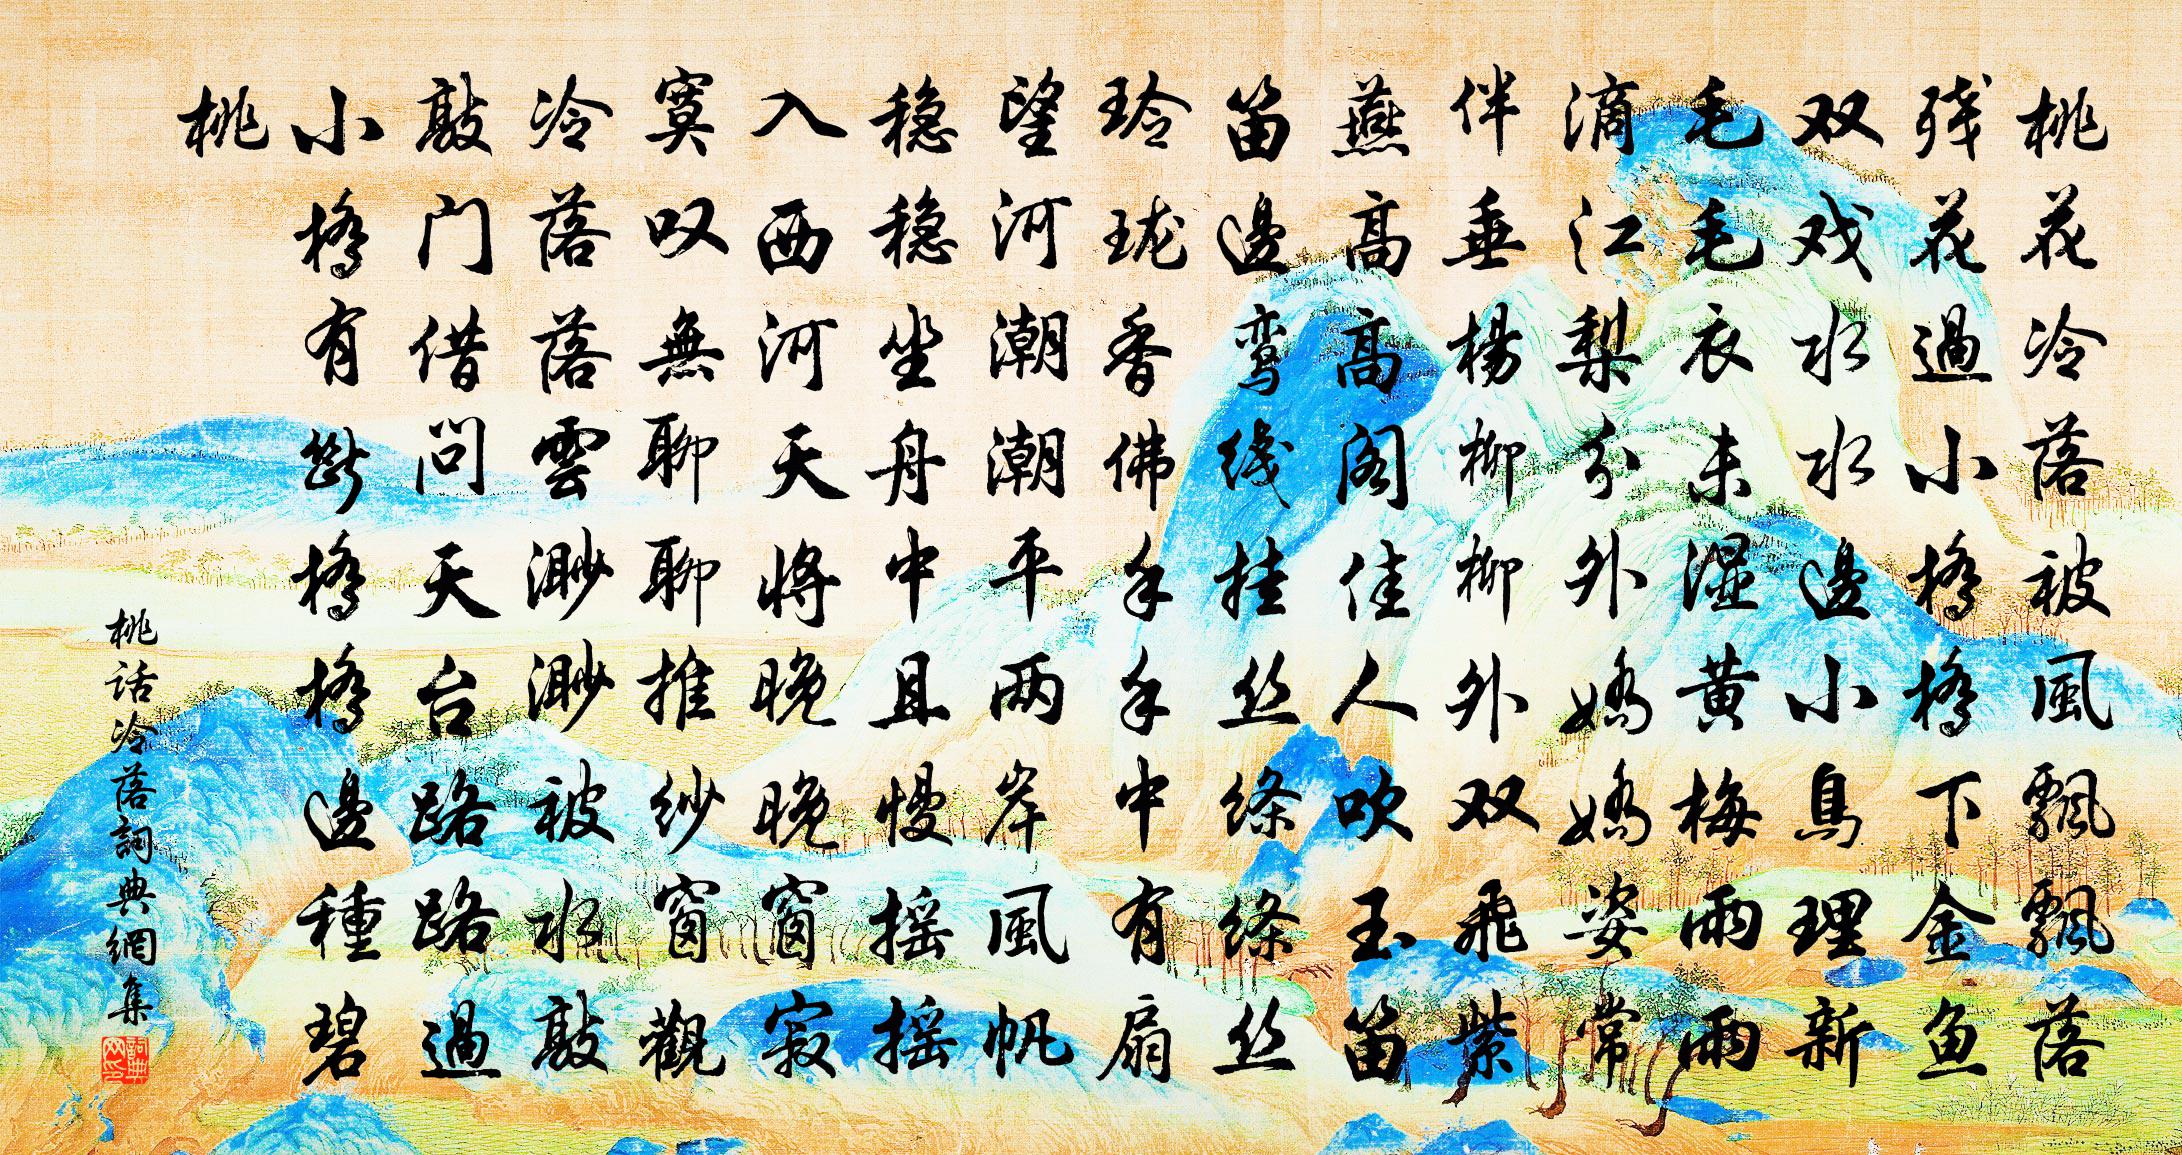 桃花冷落被風飄飄落
残花過小橋橋下金魚
双戏水水邊小鳥理新
毛毛衣未濕黄梅雨雨
滴江梨分外嬌嬌姿常
伴垂楊柳柳外双飛紫
燕高高阁佳人吹玉笛
笛邊鸾线挂丝絛絛丝
玲珑香佛手手中有扇
望河潮潮平两岸風帆
稳稳坐舟中且慢摇摇
入西河天将晚晚窗寂
寞叹無聊聊推纱窗觀
冷落落雲渺渺被水敲
敲门借問天台路路過
小橋有斷橋橋邊種碧
桃
桃话冷落詞典網集